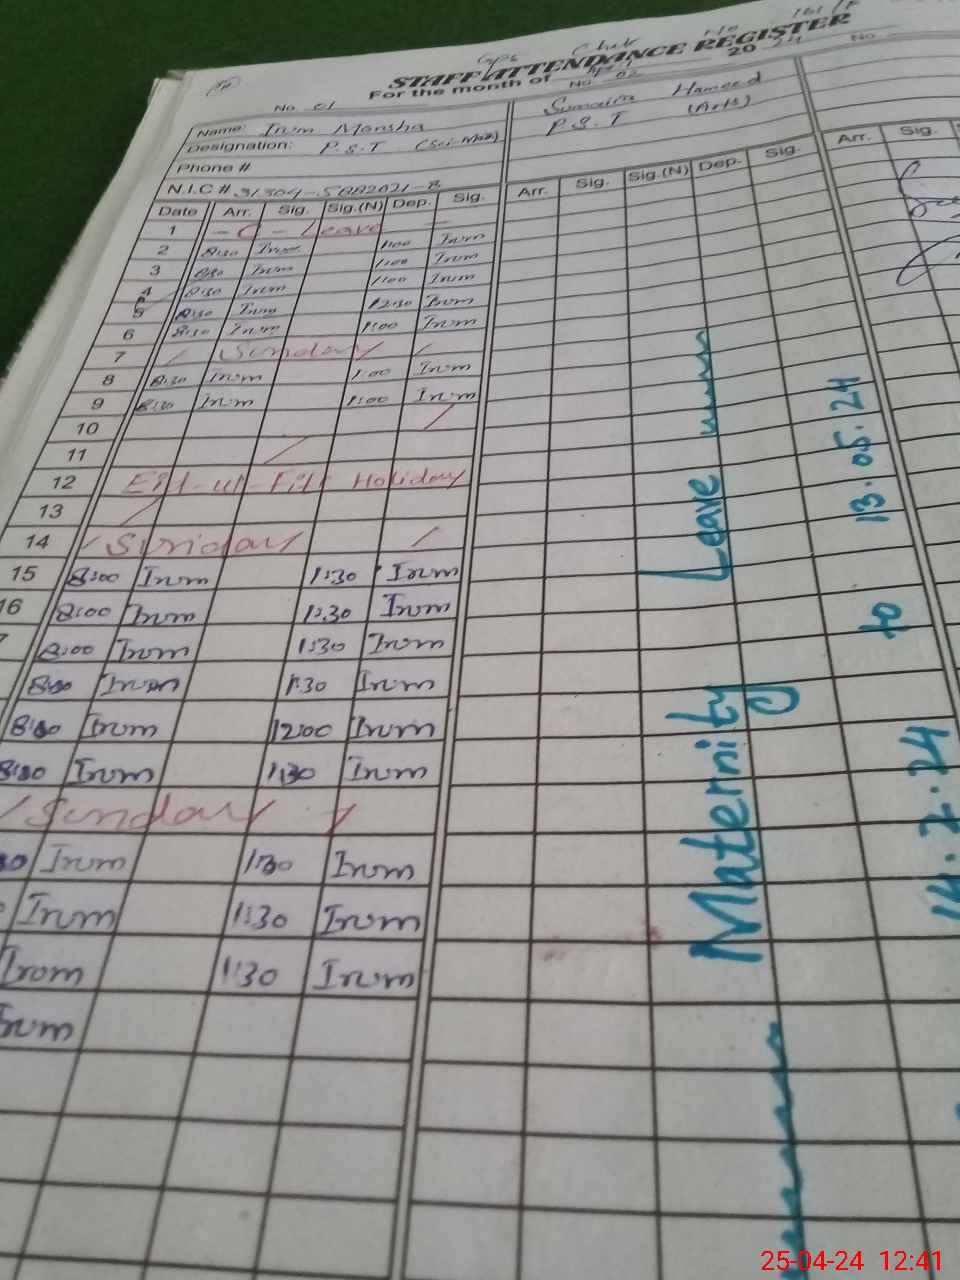 Gps Chak No 161/P
STAFF ATTENDANCE REGISTER
For the month of April 2024
No. 01 No. 02 No.
Name: Irum Mansha Sumaira Hameed
Designation: P.S.T (Sci-Math) P.S.T (Arts)
Phone #
N.I.C #
Date Arr. Sig. Sig.(N) Dep. Sig. Arr. Sig. Sig.(N) Dep. Sig. Arr. Sig.
1 - C - Leave -
2 8:30 Irum 1:00 Irum
3 8:30 Irum 1:00 Irum
4 8:30 Irum 1:00 Irum
5 8:30 Irum 12:30 Irum
6 8:30 Irum 1:00 Irum
7 Sunday
8 8:30 Irum 1:00 Irum
9 8:30 Irum 1:00 Irum
10
11
12 Eid-ul-Fitr Holiday
13
14 Sunday
15 8:00 Irum 1:30 Irum
16 8:00 Irum 1:30 Irum
7 8:00 Irum 1:30 Irum
8:00 Irum 1:30 Irum
8:00 Irum 12:00 Irum
8:00 Irum 1:30 Irum
Sunday
Irum 1:30 Irum
Irum 1:30 Irum
Irum 1:30 Irum
Irum
Maternity Leave
14.2.24 to 13.05.24
25-04-24 12:41